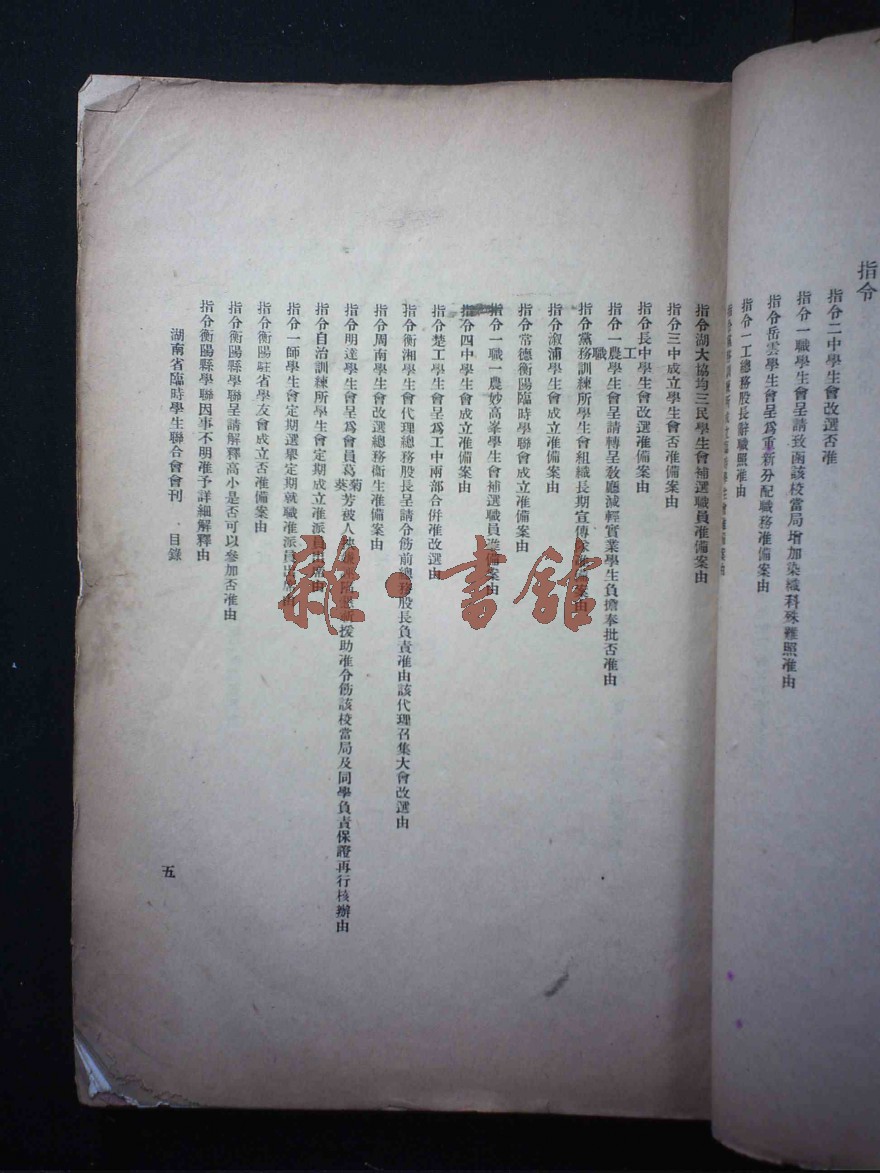 指令
指令二中學生會改選否准
指令一職學生會呈請致函該校當局增加染織科殊難照准由
指令岳雲學生會呈爲重新分配職務准備案由
指令一工總務股長辭職照准由
指令湖大協均三民學生會補選職員准備案由
指令三中成立學生會否准備案由
指令長中學生會改選准備案由
指令一農工職學生會呈請轉呈敎廳減輕實業學生負擔奉批否准由
指令黨務訓練所學生會組織長期宣傳備案由
指令溆浦學生會成立准備案由
指令常德衡陽臨時學聯會成立准備案由
指令一職一農妙高峯學生會補選職員准備案由
指令四中學生會成立准備案由
指令楚工學生會呈爲工中兩部合併准改選由
指令衡湘學生會代理總務股長呈請令飭前總務股長負責准由該代理召集大會改選由
指令周南學生會改選總務衛生准備案由
指令明達學生會呈爲會員葛菊葵芳被人援助准令飭該校當局及同學負責保證再行核辦由
指令自治訓練所學生會定期成立准派員出席由
指令一師學生會定期選舉定期就職准派員出席由
指令衡陽駐省學友會成立否准備案由
指令衡陽縣學聯呈請解釋高小是否可以參加否准由
指令衡陽縣學聯因事不明准予詳細解釋由
湖南省臨時學生聯合會會刊 目錄
五
雜·書館